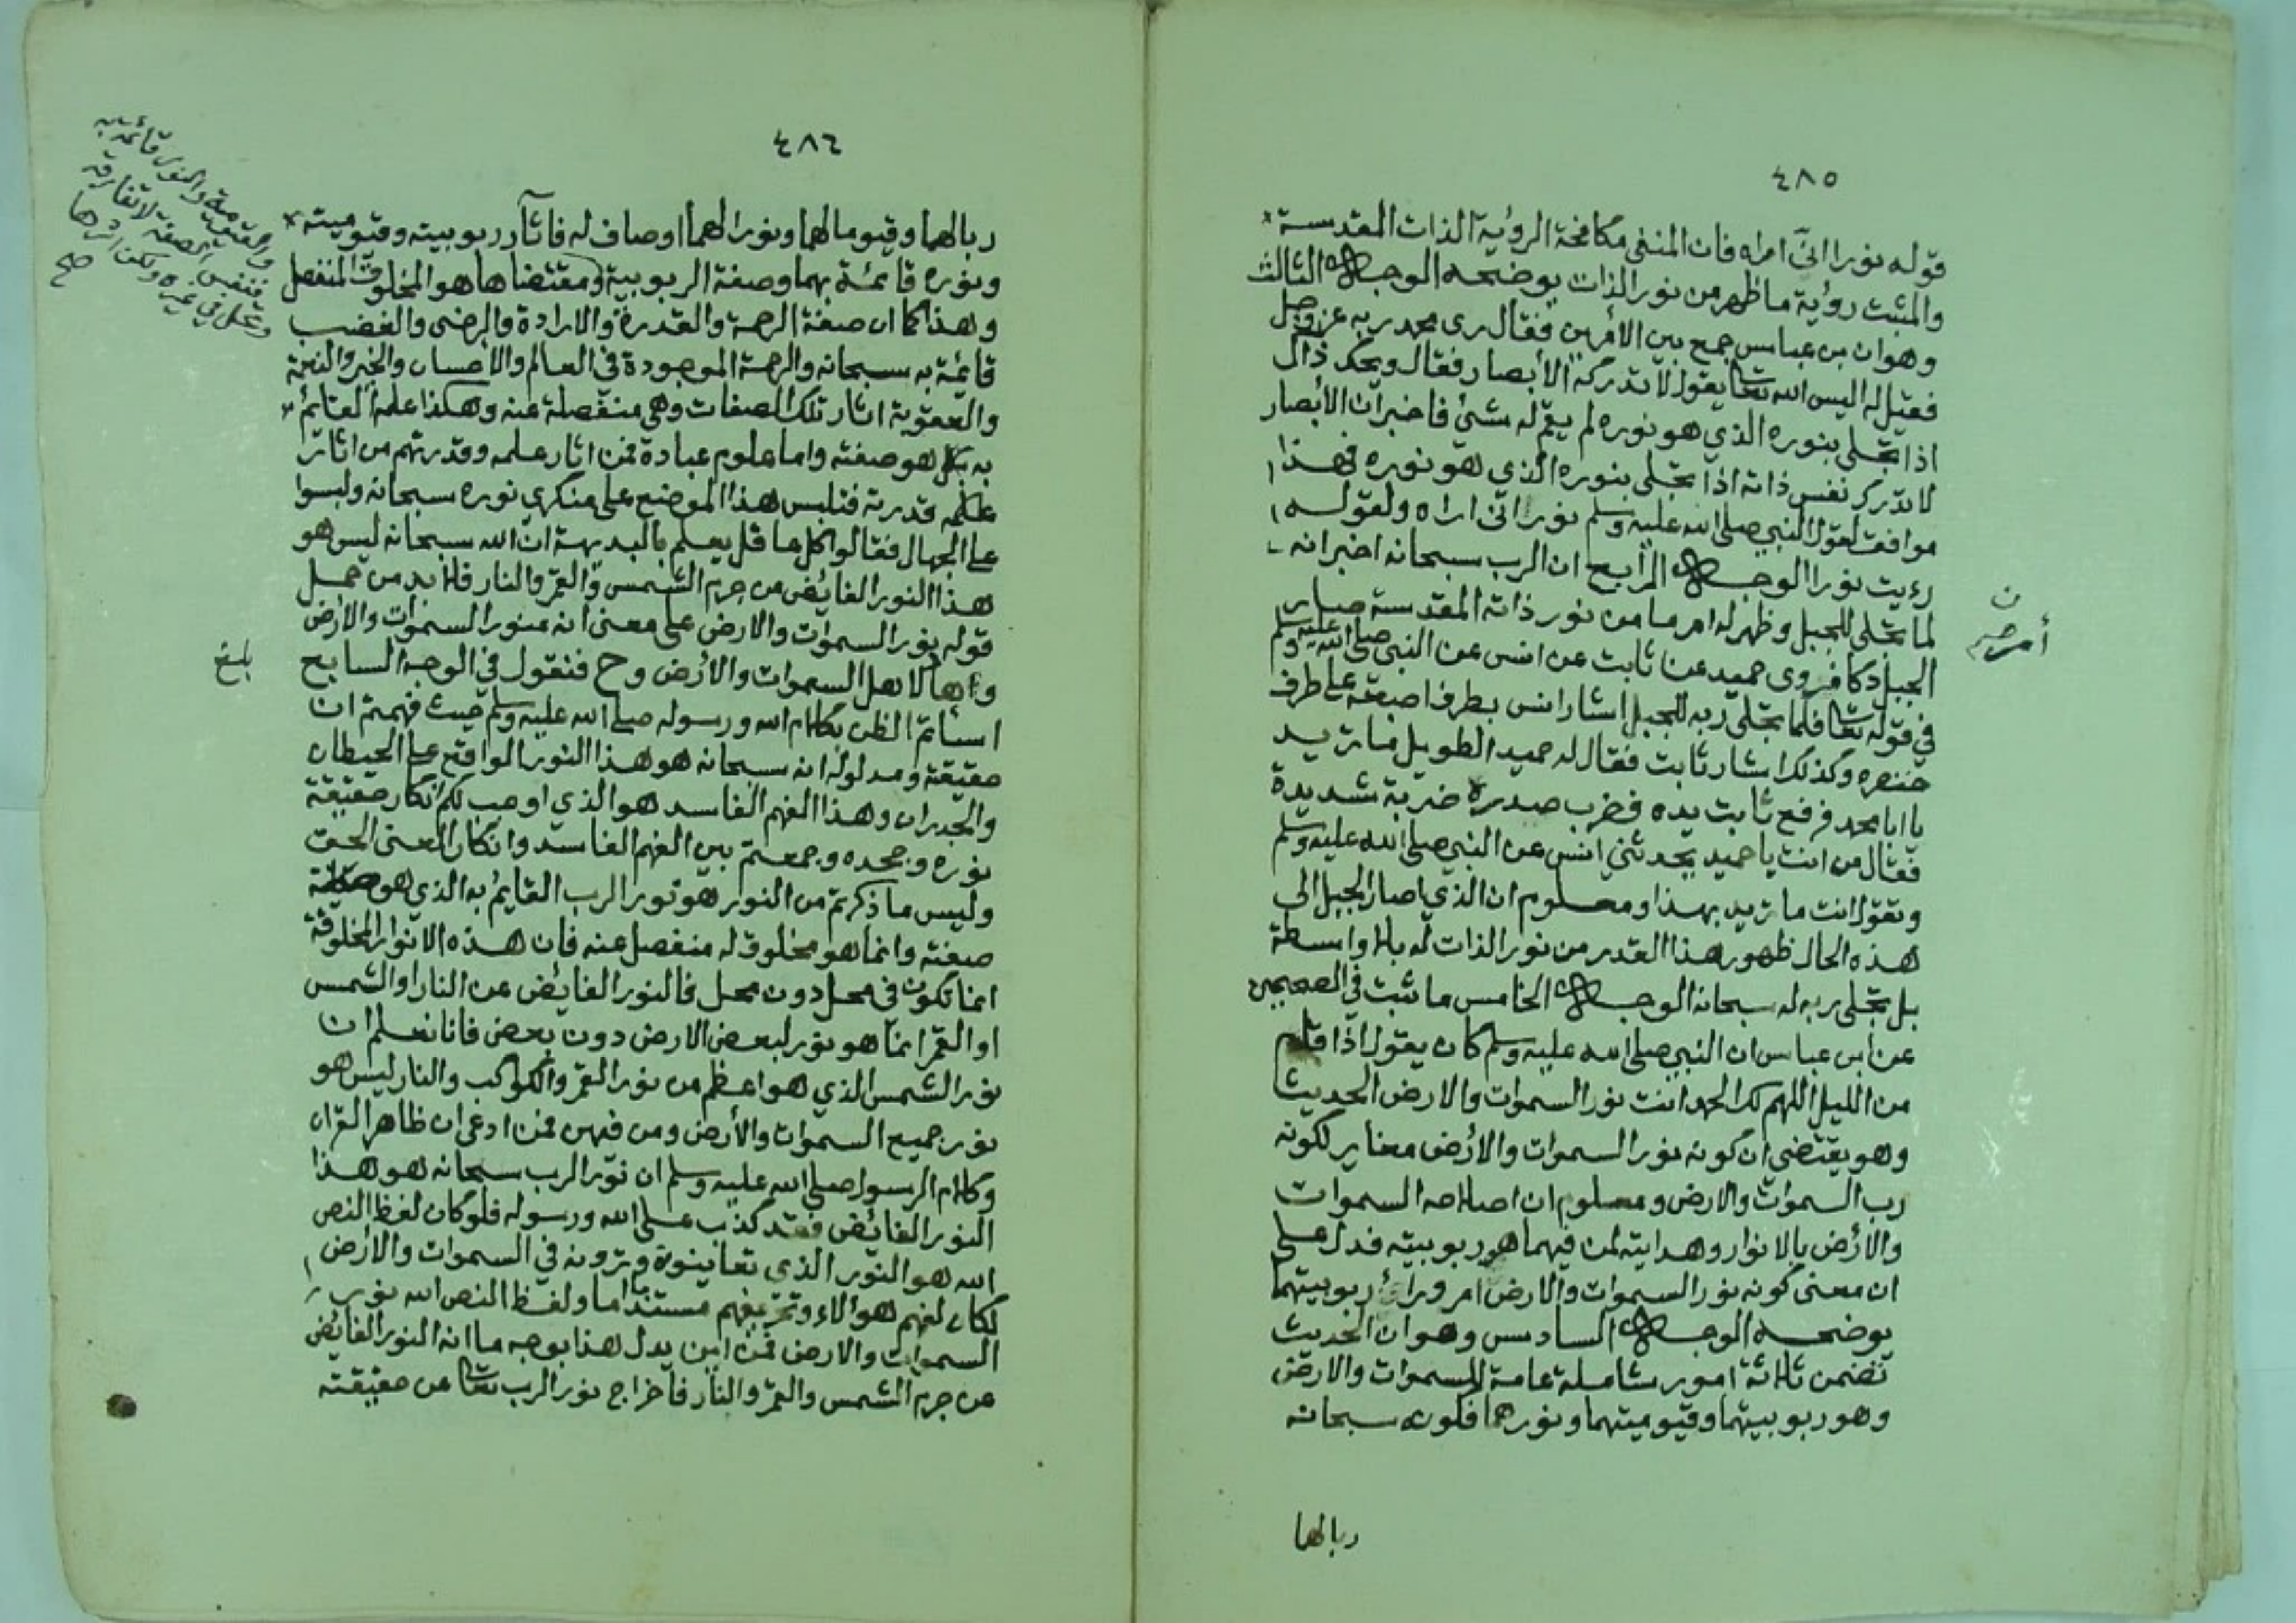 ٤٨٥
قوله نورا انّى اراه فان المنفي مكافحة الرؤية الذات المقدسة
والمثبت رؤية ما ظهر من نور الذات يوضحه الوجه الثالث
وهو ان بن عباس جمع بين الأمرين فقال رى محمد ربه عز وجل
فقيل له اليس الله تعا يقول لا تدركه الأبصار فقال ويحك ذاك
اذا تجلى بنوره الذي هو نوره لم يقم له شئ فاخبر ان الأبصار
لا تدرك نفس ذاته اذا تجلى بنوره الذي هو نوره فهذا
موافق لقول النبي صلى الله عليه وسلم نور انى اراه ولقوله
رءيت نورا الوجه الرابع ان الرب سبحانه اخبر انه
لما تجلى للجبل وظهر له امر ما من نور ذاته المقدسة صار
الجبل دكا فروى حميد عن ثابت عن انس عن النبي صلى الله عليه وسلم
في قوله تعا فلما تجلى ربه للجبل اشار انس بطرف اصبعه على طرف
خنصره وكذلك اشار ثابت فقال له حميد الطويل ما تريد
يا ابا محمد فرفع ثابت يده فضرب صدره ضربة شديدة
فقال من انت يا حميد يحدثني انس عن النبي صلى الله عليه وسلم
وتقول انت ما تريد بهذا ومعلوم ان الذي اصار الجبل الى
هذه الحال ظهور هذا القدر من نور الذات له بلا واسطة
بل تجلى ربه له سبحانه الوجه الخامس ما ثبت في الصحيحين
عن ابن عباس ان النبي صلى الله عليه وسلم كان يقول اذا قام
من الليل اللهم لك الحمد انت نور السموات والارض الحديث
وهو يقتضي ان كونه نور السموات والأرض مغاير لكونه
رب السموات والارض ومعلوم ان اصلاحه السموات
والأرض بالانوار وهدايته لمن فيهما هو ربوبيته فدل على
ان معنى كونه نور السموات والارض امر وراء ربوبيتهما
يوضحه الوجه السادس وهو ان الحديث
تضمن ثلاثة امور شاملة عامة للسموات والارض
وهو ربوبيتهما وقيوميتهما ونورهما فكونه سبحانه
ربالهما
ن
أمر صح
٤٨٦
ربالهما وقيوما لهما ونورا لهما اوصاف له فاثار ربوبيته وقيوميته
ونوره قائمة بهما وصفة الربوبية ومقتضاها هو المخلوق المنفصل
وهذا كما ان صفة الرحمة والقدرة والارادة والرضى والغضب
قائمة به سبحانه والرحمة الموجودة في العالم والاحسان والخير والنعمة
والعقوبة اثار تلك الصفات وهي منفصلة عنه وهكذا علمه القايم
به هو صفته واما علوم عباده فمن اثار علمه وقدرتهم من اثار
قدرته فتلبس هذا الموضع على منكري نوره سبحانه ولبسوا
على الجهال فقالوا كل عاقل يعلم بالبديهة ان الله سبحانه ليس هو
هذا النور الفايض من جرم الشمس والقمر والنار فلابد من حمل
قوله نور السموات والارض على معنى انه منور السموات والأرض
وهاد لاهل السموات والأرض وح فنقول في الوجه السابع
اسأتم الظن بكلام الله ورسوله صلى الله عليه وسلم حيث فهمتم ان
حقيقته ومدلوله انه سبحانه هو هذا النور الواقع على الحيطان
والجدران وهذا الفهم الفاسد هو الذي اوجب لكم انكار حقيقة
نوره وجحده وجمعتم بين الفهم الفاسد وانكار المعنى الحق
وليس ما ذكرتم من النور هو نور الرب القايم به الذي هو
صفته وانما هو مخلوق له منفصل عنه فان هذه الانوار المخلوقة
انما تكون في محل دون محل فالنور الفايض عن النار او الشمس
او القمر انما هو نور لبعض الارض دون بعض فانا نعلم ان
نور الشمس الذي هو اعظم من نور القمر والكواكب والنار ليس هو
نور جميع السموات والأرض ومن فيهن فمن ادعى ان ظاهر القران
وكلام الرسول صلى الله عليه وسلم ان نور الرب سبحانه هو هذا
النور الفائض فقد كذب على الله ورسوله فلو كان لفظ النص
الله هو النور الذي تعاينونه وترونه في السموات والارض
لكان لفهم هؤلاء وتحريفهم مستند اما ولفظ النص الله نور
السموات والارض فمن اين يدل هذا بوجه ما انه النور الفائض
عن جرم الشمس والقمر والنار فاخراج نور الرب تعا عن حقيقته
والقيومية والنور قائمة به
فنفس الصفة لا تفارقه
وتحل في غيره ولكن اثرها
صح
بلغ